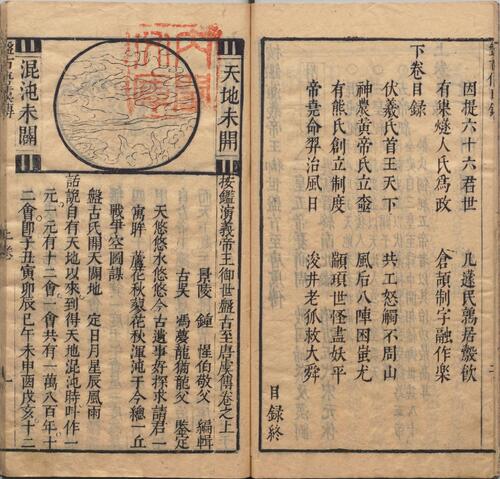 因提六十六君世　九蓬氏鶉居鷇飲
有巢燧人氏為政　倉頡制字融作樂
下卷目录
伏羲氏首王天下　共工怒觸不周山
神農黃帝氏立　風后八陣困蚩尤
有熊氏創立制度　顓頊世怪盡妖平
帝堯命羿治風日　浚井老狐救大舜
目錄終
天地未開
混沌未闢
按鑑演義帝王御世盤古至唐虞傳卷之上
景陵　鍾　惺伯敬父　編輯
古吳　馮夢龍猶龍父　鑒定
天悠悠水悠悠今古遺事好探求請君一
寓眸　蘆花秋蓼花秋渾沌于今總一丘
戰爭空圖謀
盤古氏開天闢地　定日月星辰風雨
話說自有天地以來到得天地混沌時叫作一
元一元有十二會一會共有一萬八百年十
二會卽子丑寅卯辰巳午未申酉戌亥十二